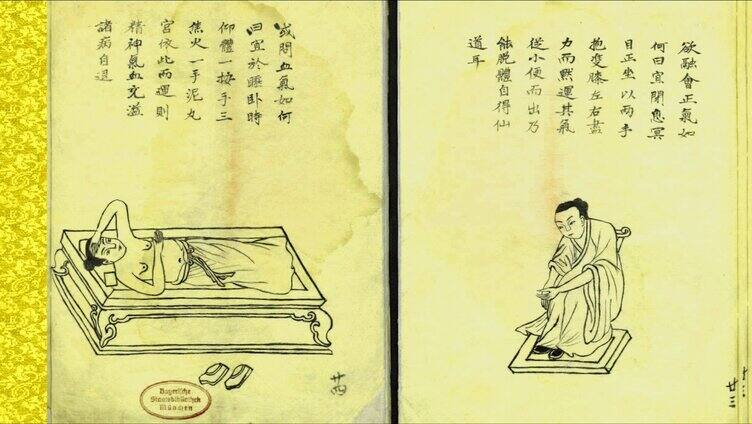 欲融會正氣如
何曰宜閉息冥
目正坐以兩手
抱变膝左右盡
力而黙運其氣
從小便而出乃
能脫體自得仙
道耳
廿三
或問血氣如何
曰宜於睡卧時
仰體一按手三
焦火一手泥丸
宮依此兩運則
精神氣血交溢
諸病自退
廿四
Bayerische
Staatsbibliothek
München